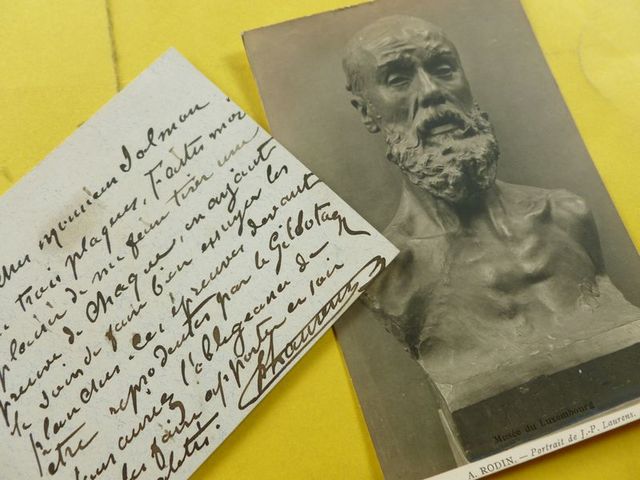 Cher monsieur Salmon
trois plaques. Faites moi
plaisir de me faire tirer une
épreuve de chaque, en ayant
le soin de faire bien essuyer les
planches. Ces épreuves devant
être reproduites par le Gillotage
vous auriez l'obligeance de
les faire apporter ce soir
Musée du Luxembourg
A. RODIN. — Portrait de J.-P. Laurens.